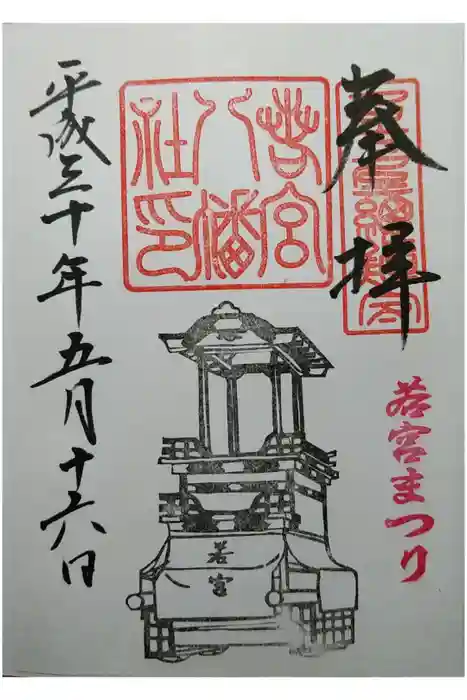 奉拝
若宮
八幡
社印
若宮まつり
若宮
平成三十年五月十六日